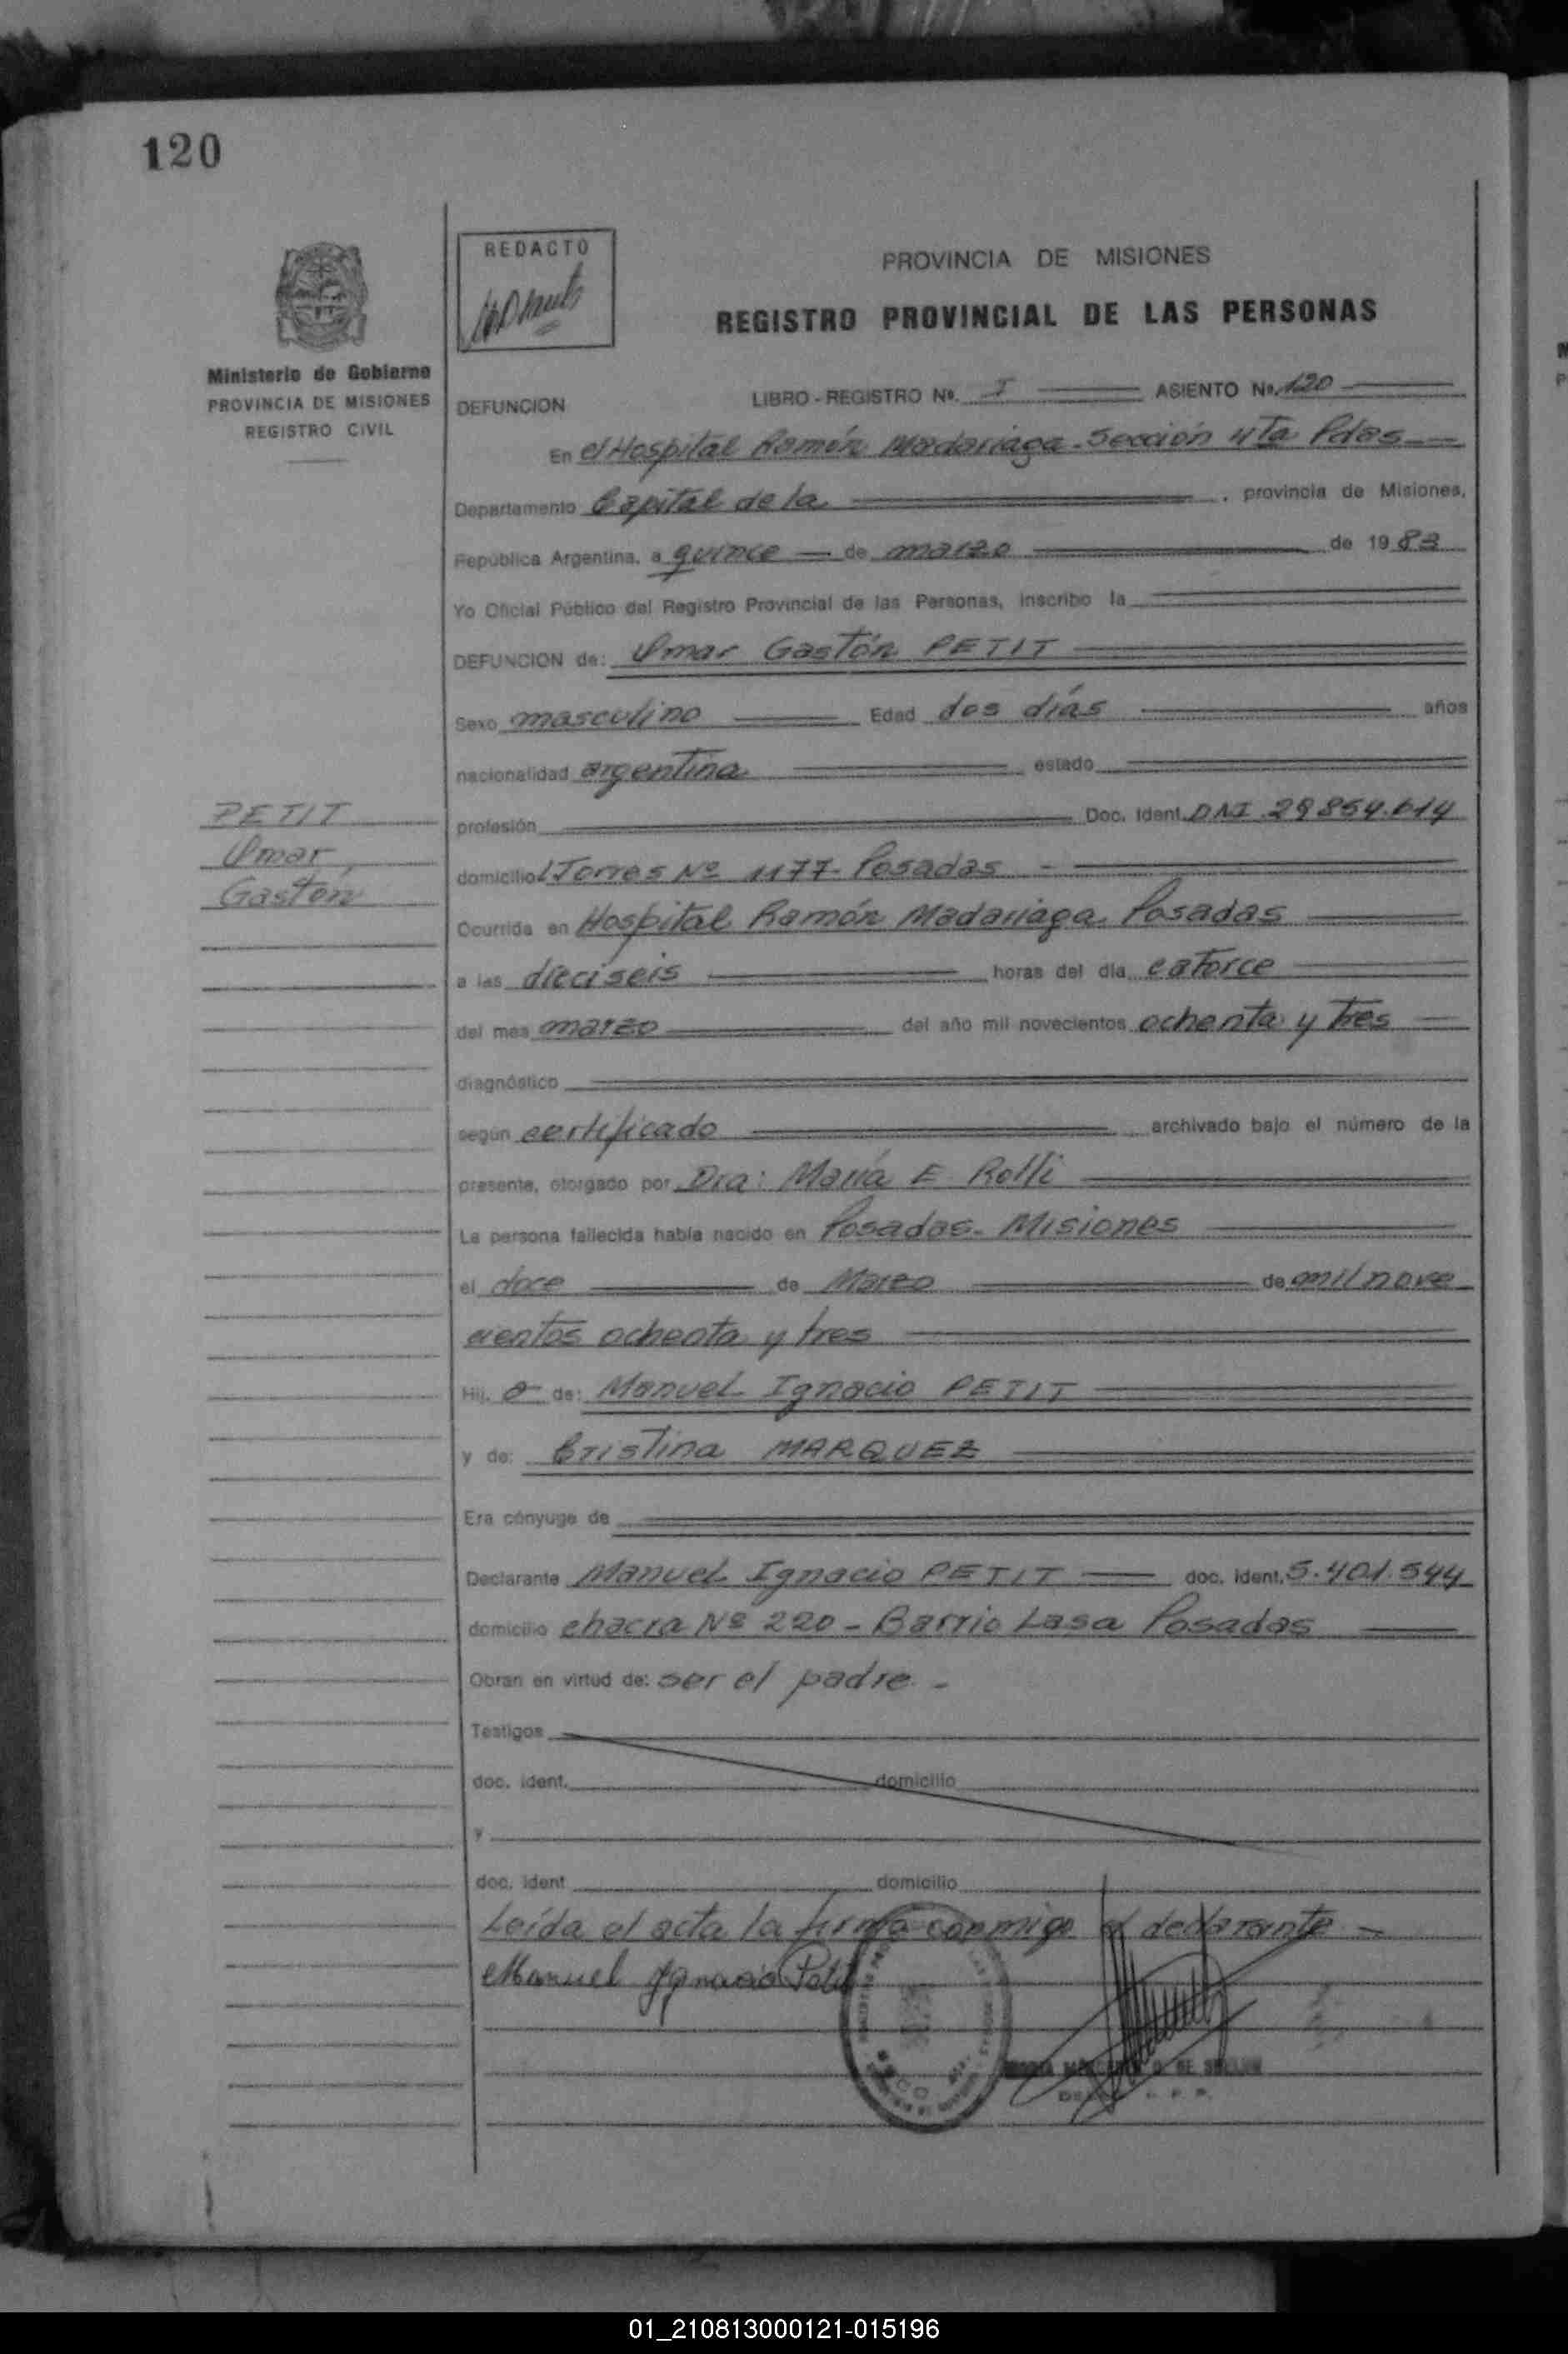 120
REDACTO
PROVINCIA DE MISIONES
REGISTRO PROVINCIAL DE LAS PERSONAS
Ministerio de Gobierno
PROVINCIA DE MISIONES
REGISTRO CIVIL
DEFUNCION LIBRO - REGISTRO Nº. I ASIENTO Nº. 120
En el Hospital Ramón Madariaga - Sección 4ta Pdas
Departamento Capital de la , provincia de Misiones,
República Argentina, a quince de marzo de 1983
Yo Oficial Público del Registro Provincial de las Personas, inscribo la
DEFUNCION de: Omar Gastón PETIT
Sexo masculino Edad dos días años
nacionalidad argentina estado
PETIT
Omar
Gastón
profesión Doc. Ident. DNI 29.854.614
domicilio Torres Nº 1177 - Posadas -
Ocurrida en Hospital Ramón Madariaga. Posadas
a las dieciseis horas del día catorce
del mes marzo del año mil novecientos ochenta y tres
diagnóstico
según certificado archivado bajo el número de la
presente, otorgado por Dra: María E Rolli
La persona fallecida había nacido en Posadas - Misiones
el doce de Marzo de mil nove
cientos ochenta y tres
Hij. o de: Manuel Ignacio PETIT
y de: Cristina MARQUEZ
Era cónyuge de
Declarante Manuel Ignacio PETIT doc. ident. 5.401.544
domicilio chacra Nº 220 - Barrio Lasa Posadas
Obran en virtud de: ser el padre -
Testigos
doc. ident. domicilio
y
doc. ident domicilio
Leída el acta la firma conmigo el declarante -
Manuel Ignacio Petit
01_210813000121-015196